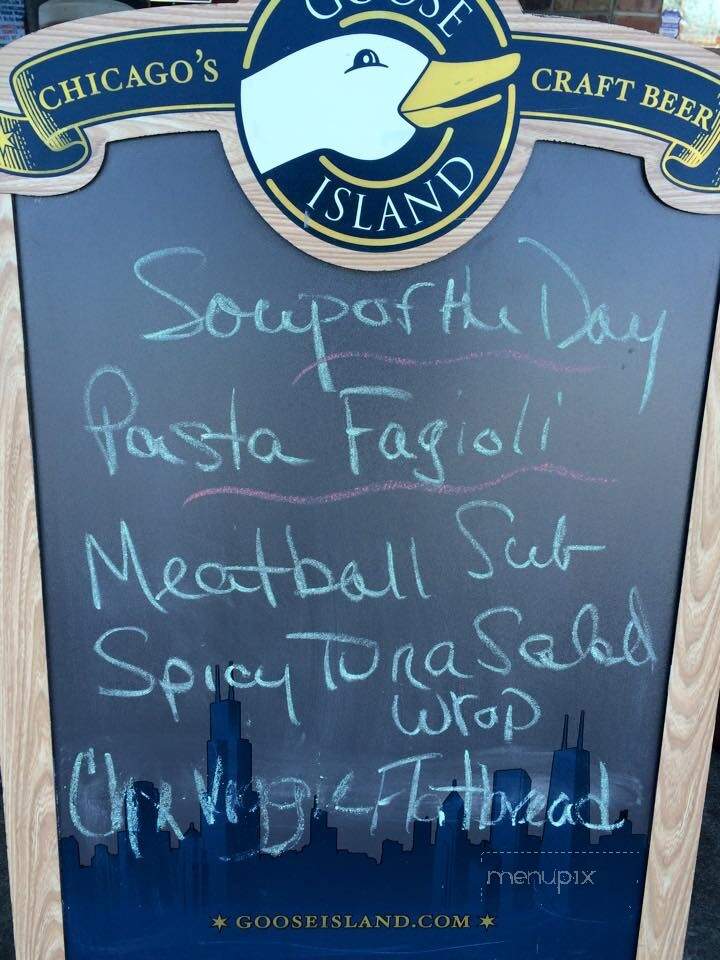 GOOSE
CHICAGO'S
CRAFT BEER
ISLAND
Soup of the Day
Pasta Fagioli
Meatball Sub
Spicy Tuna Salad
wrap
Veggie Flatbread
menupix
GOOSEISLAND.COM